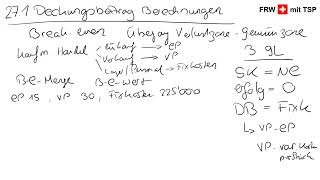 27.1 Deckungsbeitrag Berechnungen
FRW mit TSP
Break-even Übergang Verlustzone - Gewinnzone
Kaufm Handel
Einkauf → EP
Verkauf → VP
Lager/Personal → Fixkosten
B-E-Menge B-E-Wert
EP 15, VP 30, Fixkosten 225'000
3 GL
SK = NE
Erfolg = 0
DB = Fixk
↳ VP-EP
VP-var Kosten
pro Stück